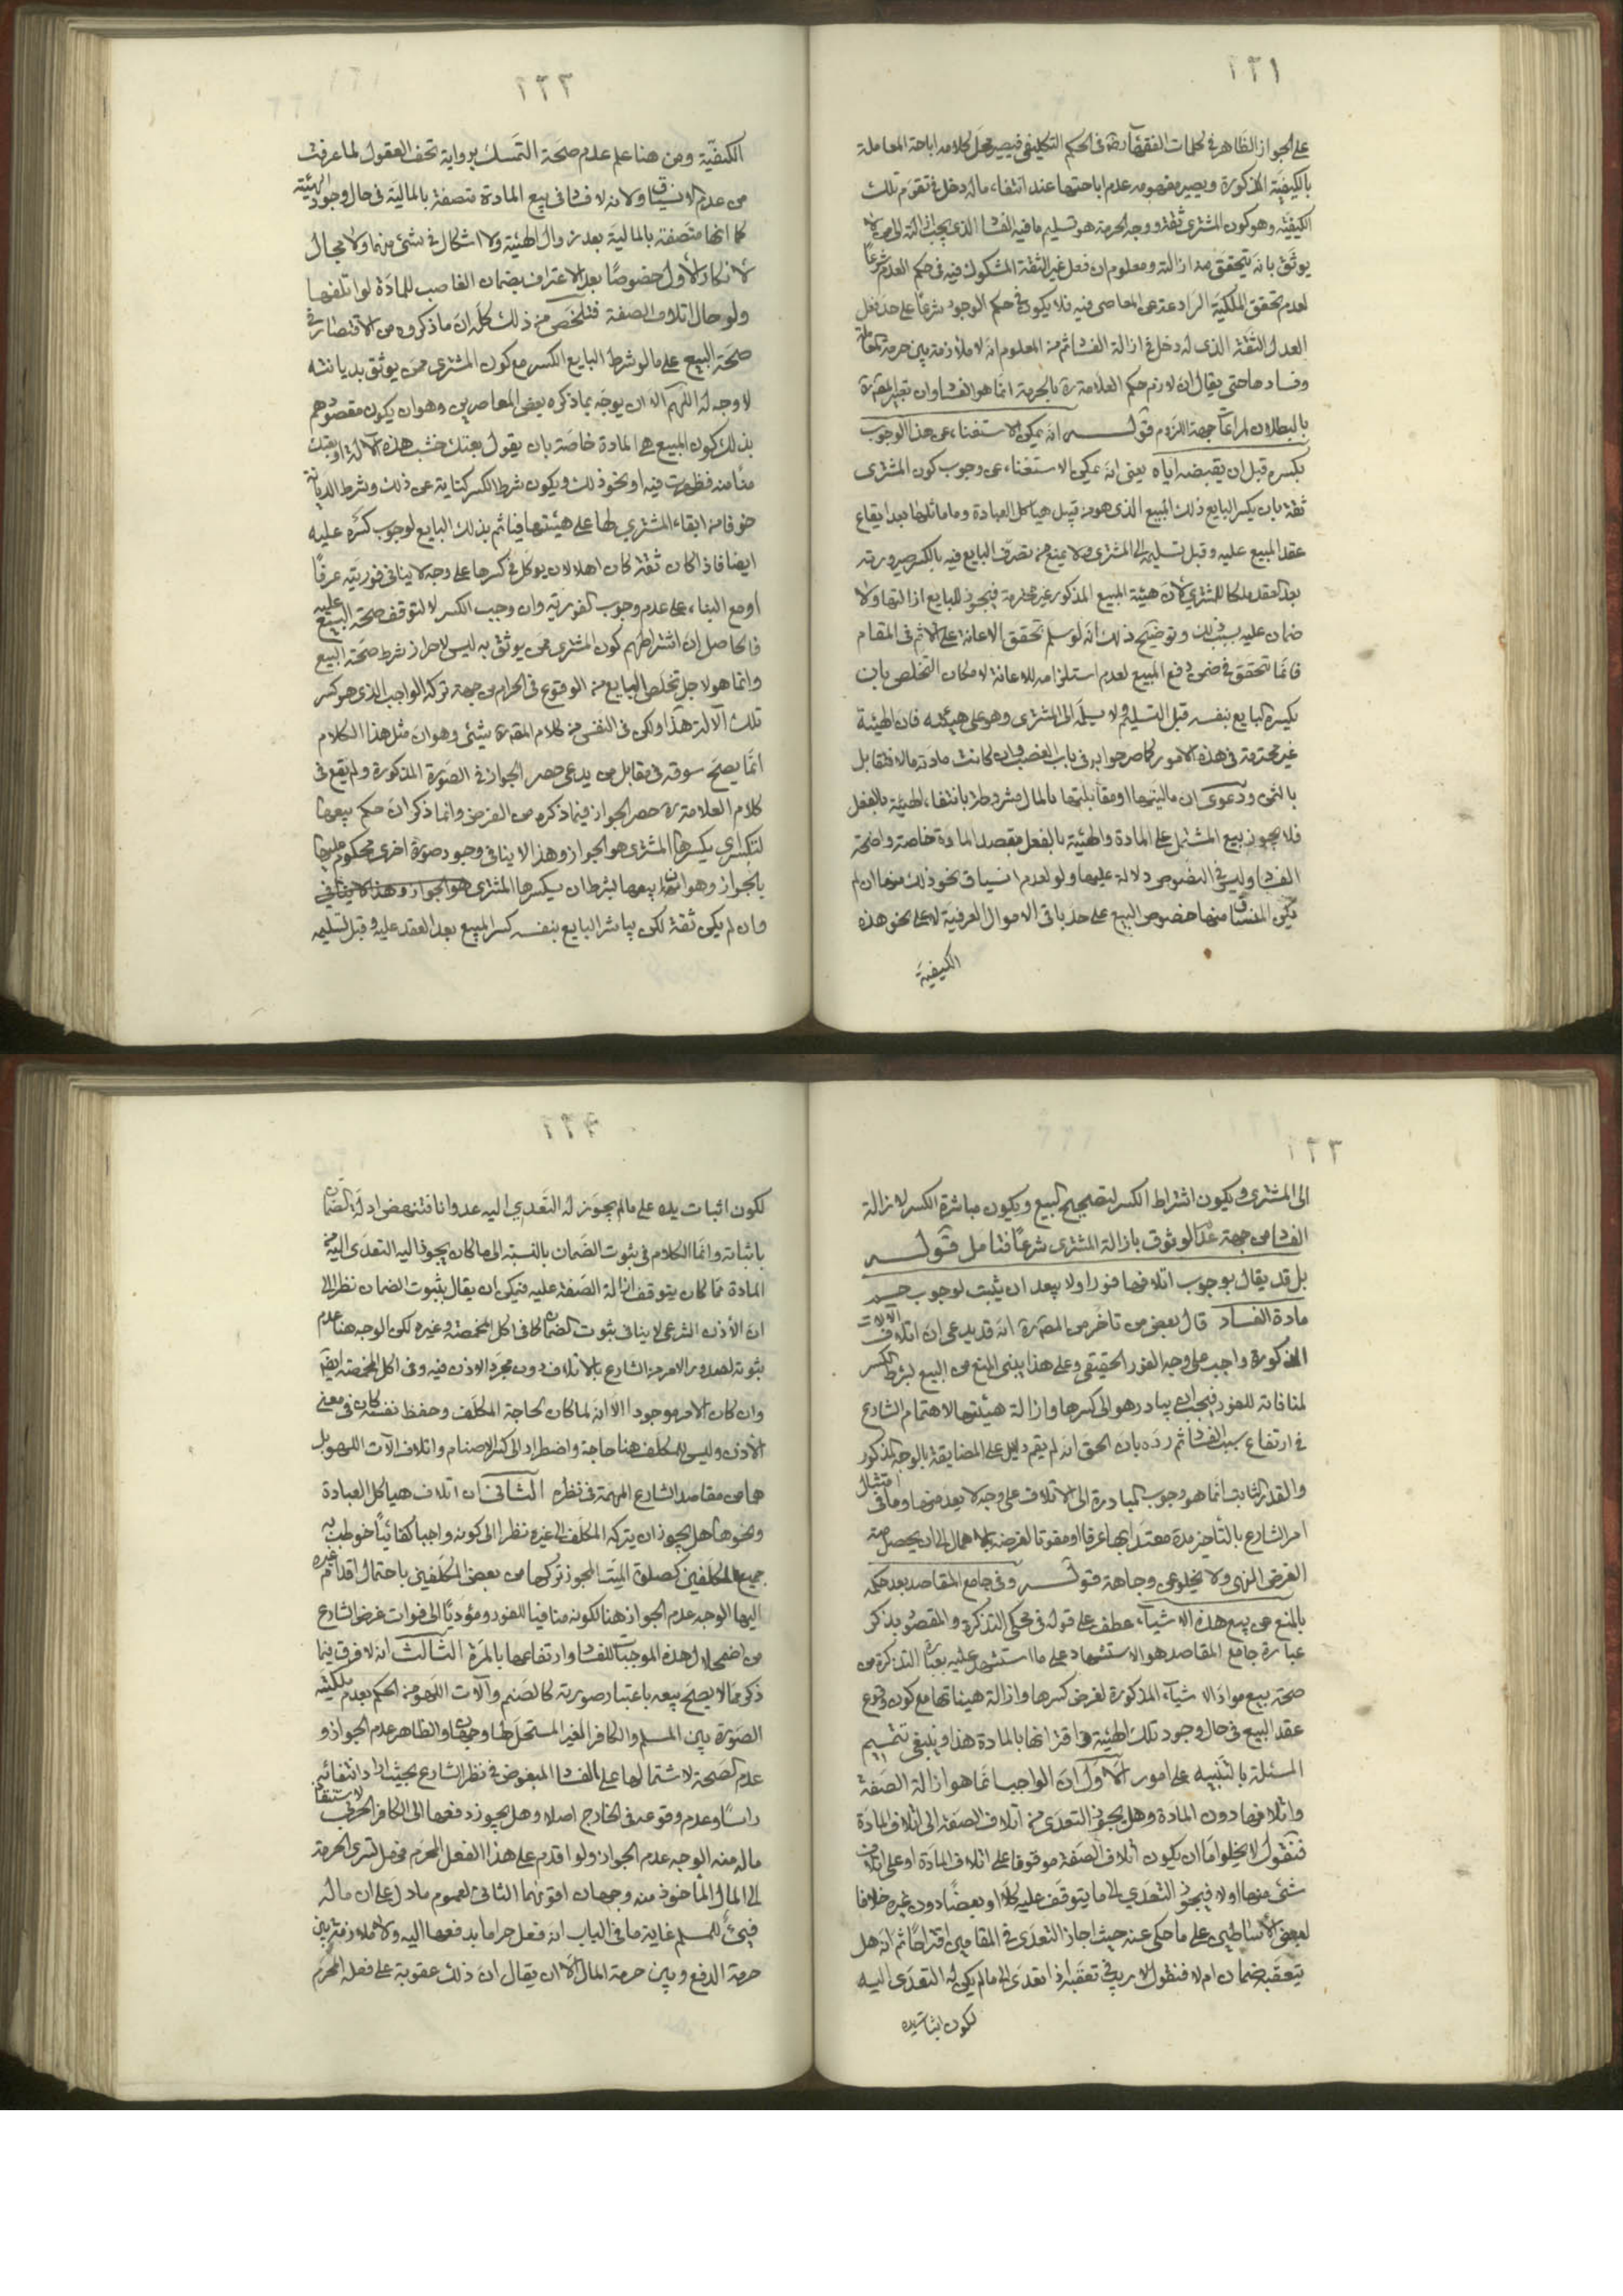 ١٢١
على الجواز الظاهر في كلمات الفقهاء في الحكم التكليفي فيصير محل كلامه اباحة المعاملة
بالكيفية المذكورة ويصير مفهومه عدم اباحتها عند انتفاء ماله دخل في تقوم تلك
الكيفية وهو كون المشتري ثقة ووجه الحرمة هو تسليم ما فيه الفساد الذي يجب ازالته الى من لا
يوثق بانه يتحقق منه ازالته ومعلوم ان فعل غير الثقة المشكوك فيه في حكم العدم شرعاً
لعدم تحقق الملكة الرادعة عن المعاصي فيه فلا يكون في حكم الوجود شرعاً على حد فعل
العدل الثقة الذي له دخل في ازالة الفساد ثم من المعلوم انه لا ملازمة بين حرمة المعاملة
وفسادها حتى يقال ان لازم حكم العلامة ره بالحرمة انما هو الفساد وان تعبير المص ره
بالبطلان لمراعات جهة اللزوم قوله انه يمكن الاستغناء عن هذا الوجوب
بكسره قبل ان يقبضه اياه يعني انه يمكن الاستغناء عن وجوب كون المشتري
ثقة بان يكسر البايع ذلك المبيع الذي هو من قبيل هياكل العبادة وما ماثلها بعد ايقاع
عقد المبيع عليه وقبل تسليمه الى المشتري ولا يمنع من تصرف البايع فيه بالكسر صيرورته
بعد العقد ملكا للمشتري لان هيئة المبيع المذكور غير محترمة فيجوز للبايع ازالتها ولا
ضمان عليه بسبب ذلك وتوضيح ذلك انه لو سلم تحقق الاعانة على الاثم في المقام
فانما تتحقق في ضمن دفع المبيع لعدم استلزامه للاعانة لامكان التخلص بان
يكسره البايع بنفسه قبل التسليم ولا يسلمه الى المشتري وهو على هيئته فان الهيئة
غير محترمة في هذه الامور كما صرحوا به في باب الغصب وان كانت مادته مالا فتقابل
بالثمن ودعوى ان ماليتها او مقابلتها بالمال مشروطة بانتفاء الهيئة بالفعل
فلا يجوز بيع المشتمل على المادة والهيئة بالفعل بقصد المادة خاصة واضحة
الفساد وليس في النصوص دلالة عليها ولو لعدم انسياق نحو ذلك منها ان لم
يكن المنساق منها خصوص البيع على حد باقي الاموال العرفية لا على نحو هذه
الكيفية
١٢٢
الكيفية ومن هنا علم عدم صحة التمسك برواية تحف العقول لما عرفت
من عدم الانسياق ولانه لا فساد في بيع المادة متصفة بالمالية في حال وجود الهيئة
كما انها متصفة بالمالية بعد زوال الهيئة ولا اشكال في شئ منهما ولا مجال
لانكار الاول خصوصاً بعد الاعتراف بضمان الغاصب للمادة لو اتلفها
ولو حال اتلاف الصفة فتلخص من ذلك كله ان ما ذكروه من الاقتصار في
صحة البيع على ما لو شرط البايع الكسر مع كون المشتري ممن يوثق بديانته
لا وجه له اللهم الا ان يوجه بما ذكره بعض المعاصرين وهو ان يكون مقصودهم
بذلك كون المبيع هي المادة خاصة بان يقول بعتك خشب هذه الالة او بعتك
منا منه فظهرت فيه او نحو ذلك ويكون شرط الكسر كناية عن ذلك وشرط الديانة
خوفا من ابقاء المشتري لها على هيئتها فياثم بذلك البايع لوجوب كسره عليه
ايضا فاذا كان ثقة كان اهلا لان يوكل في كسرها على وجه لا ينافي فوريته عرفاً
او مع البناء على عدم وجوب الفورية وان وجب الكسر لا لتوقف صحة البيع عليه
فالحاصل ان اشتراطهم كون المشتري ممن يوثق به ليس لاحراز شرط صحة البيع
وانما هو لاجل تخلص البايع من الوقوع في الحرام من جهة تركه الواجب الذي هو كسر
تلك الآلة هذا ولكن في النفس من كلام المص ره شئ وهو ان مثل هذا الكلام
انما يصح سوقه في مقابل من يدعي حصر الجواز في الصورة المذكورة ولم يقع في
كلام العلامة ره حصر الجواز فيما ذكره من الفرض وانما ذكر ان حكم بيعها
لتكسر اي يكسرها المشتري هو الجواز وهذا لا ينافي وجود صورة اخرى محكوم عليها
بالجواز وهو ان يبيعها بشرط ان يكسرها المشتري هو الجواز وهذا لا ينافي
وان لم يكن ثقة لكن يباشر البايع بنفسه كسر المبيع بعد العقد عليه وقبل تسليمه
١٢٣
الى المشتري ويكون اشتراط الكسر لتصحيح البيع ويكون مباشرة الكسر لازالة
الفساد من جهة عدم الوثوق بازالة المشتري شرعاً فتامل قوله
بل قد يقال بوجوب اتلافها فورا ولا يبعد ان يثبت لوجوب حسم
مادة الفساد قال بعض من تاخر من المص ره انه قد يدعى ان اتلاف الآلات
المذكورة واجب على وجه الفور الحقيقي وعلى هذا يبنى المنع من البيع بشرط الكسر
لمنافاته للفور فيجب ان يبادر هو الى كسرها وازالة هيئتها لاهتمام الشارع
في ارتفاع سبب الفساد ثم رده بان الحق انه لم يقم دليل على المضايقة بالوجه المذكور
والقدر الثابت انما هو وجوب المبادرة الى الاتلاف على وجه لا يعد منها وما في امتثال
امر الشارع بالتاخير مدة معتدا بها عرفا او مفوتا لغرضه بالاهمال الى ان يحصل منه
الغرض المنهي ولا يخلو عن وجاهة قوله وفي جامع المقاصد بعد حكمه
بالمنع عن بيع هذه الاشياء عطف على قوله في محكي التذكرة والمقصود بذكر
عبارة جامع المقاصد هو الاستشهاد على ما استشهد عليه بعبارة التذكرة من
صحة بيع مواد الاشياء المذكورة لغرض كسرها وازالة هيئاتها مع كون وقوع
عقد البيع في حال وجود تلك الهيئة واقترانها بالمادة هذا وينبغي تتميم
المسئلة بالتنبيه على امور الاول ان الواجب انما هو ازالة الصفة
واتلافها دون المادة وهل يجوز التعدي من اتلاف الصفة الى اتلاف المادة
فنقول لا يخلو اما ان يكون اتلاف الصفة موقوفا على اتلاف المادة او على اتلاف
شئ منها او لا فيجوز التعدي الى ما يتوقف عليه كلا او بعضاً دون غيره خلافا
لبعض الاساطين على ما حكي عنه حيث اجاز التعدي في المقامين اقتراحاً ثم انه هل
يتعقبه ضمان ام لا فنقول لا ريب في تعقبه اذا تعدى الى ما لم يكن له التعدي اليه
لكون اثبات يده
١٢٤
لكون اثبات يده على ما لم يجوز له التعدي اليه عدوانا فتنهض ادلة الضمان
باثباته وانما الكلام في ثبوت الضمان بالنسبة الى ما كان يجوز اليه التعدي اليه من
المادة مما كان يتوقف ازالة الصفة عليه فيمكن ان يقال بثبوت الضمان نظرا الى
ان الاذن الشرعي لا ينافي ثبوت الضمان كما في اكل المخمصة وغيره لكن الوجه هنا عدم
ثبوته لصدور الامر من الشارع بالاتلاف دون مجرد الاذن فيه وفي اكل المخمصة ايضا
وان كان الامر موجودا الا انه لما كان لحاجة المكلف وحفظ نفسه كان في معنى
الاذن وليس للمكلف هنا حاجة واضطرار الى كسر الاصنام واتلاف الآت اللهو بل
هما من مقاصد الشارع المهمة في نظره الثاني ان اتلاف هياكل العبادة
ونحوها هل يجوز ان يتركه المكلف الى غيره نظرا الى كونه واجبا كفائياً خوطب به
جميع المكلفين كصلوة الميت المجوز تركها من بعض المكلفين باحتمال اقدام غيره
اليها الوجه عدم الجواز هنا لكونه منافيا للفور ومؤدياً الى فوات غرض الشارع
من اضمحلال هذه الموجبات للفساد وارتفاعها بالمرة الثالث انه لا فرق فيما
ذكر مما لا يصح بيعه باعتبار صورته كالصنم وآلات اللهو من الحكم بعدم ملكية
الصورة بين المسلم والكافر الغير المستحل لها وجهان والظاهر عدم الجواز و
عدم الصحة لاشتمالها على الفساد المبغوض في نظر الشارع بحيث اراد انتفائه
راساً وعدم وقوعه في الخارج اصلا وهل يجوز دفعها الى الكافر الحربي لاستنقاذ
ماله منه الوجه عدم الجواز ولو اقدم على هذا الفعل المحرم فهل تسري الحرمة
الى المال الماخوذ منه وجهان اقويهما الثاني لعموم ما دل على ان ماله
فيئ للمسلم غاية ما في الباب انه فعل حراما بدفعها اليه ولا ملازمة بين
حرمة الدفع وبين حرمة المال الا ان يقال ان ذلك عقوبة على فعله المحرم